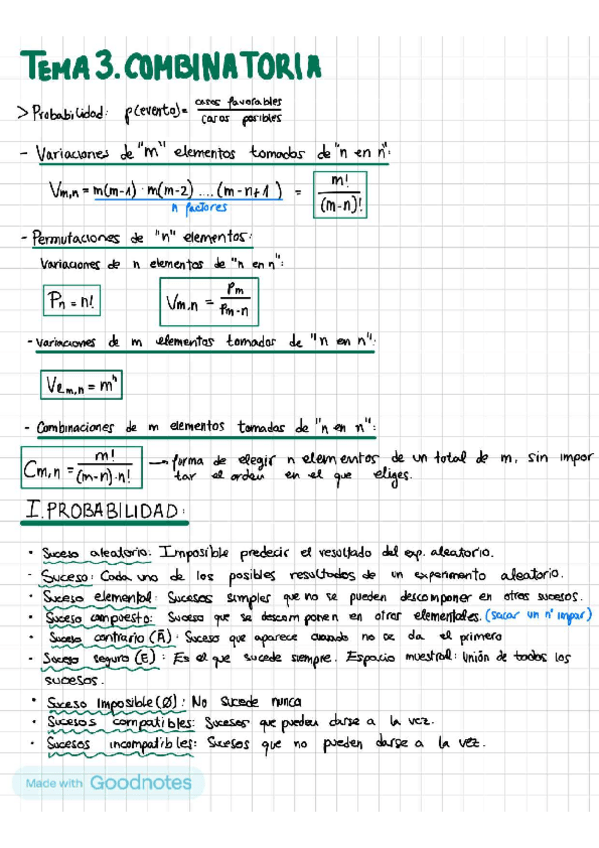 TEMA 3. COMBINATORIA
> Probabilidad: p(evento) = casos favorables / casos posibles
- Variaciones de "m" elementos tomados de "n en n":
Vm,n = m(m-1) · m(m-2) .... (m-n+1) = m! / (m-n)!
n factores
- Permutaciones de "n" elementos:
Variaciones de n elementos de "n en n":
Pn = n!   Vm,n = Pm / Pm-n
- Variaciones de m elementos tomados de "n en n":
Vem,n = mⁿ
- Combinaciones de m elementos tomadas de "n en n":
Cm,n = m! / (m-n)·n! → forma de elegir n elementos de un total de m, sin impor
tar el orden en el que eliges.
I. PROBABILIDAD:
· Suceso aleatorio: Imposible predecir el resultado del exp. aleatorio.
- Suceso: Cada uno de los posibles resultados de un experimento aleatorio.
· Suceso elemental: Sucesos simples que no se pueden descomponer en otros sucesos.
· Suceso compuesto: Suceso que se descomponen en otros elementales. (sacar un nº impar)
· Suceso contrario (Ā): Suceso que aparece cuando no se da el primero
- Suceso seguro (E): Es el que sucede siempre. Espacio muestral: Unión de todos los
sucesos.
· Suceso Imposible (Ø): No sucede nunca
· Sucesos compatibles: Sucesos que pueden darse a la vez.
· Sucesos incompatibles: Sucesos que no pueden darse a la vez.
Made with Goodnotes